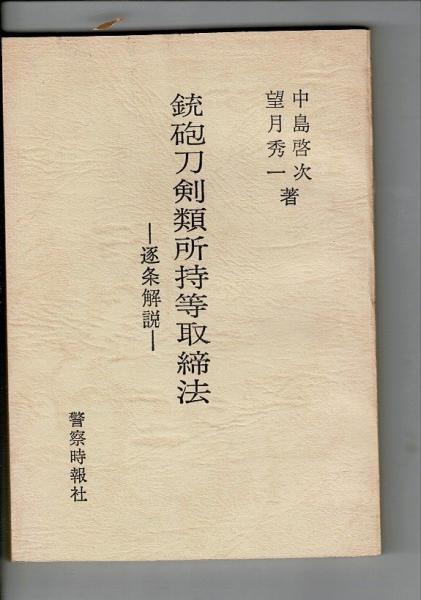 中島啓次
望月秀一 著
銃砲刀剣類所持等取締法
―逐条解説―
警察時報社